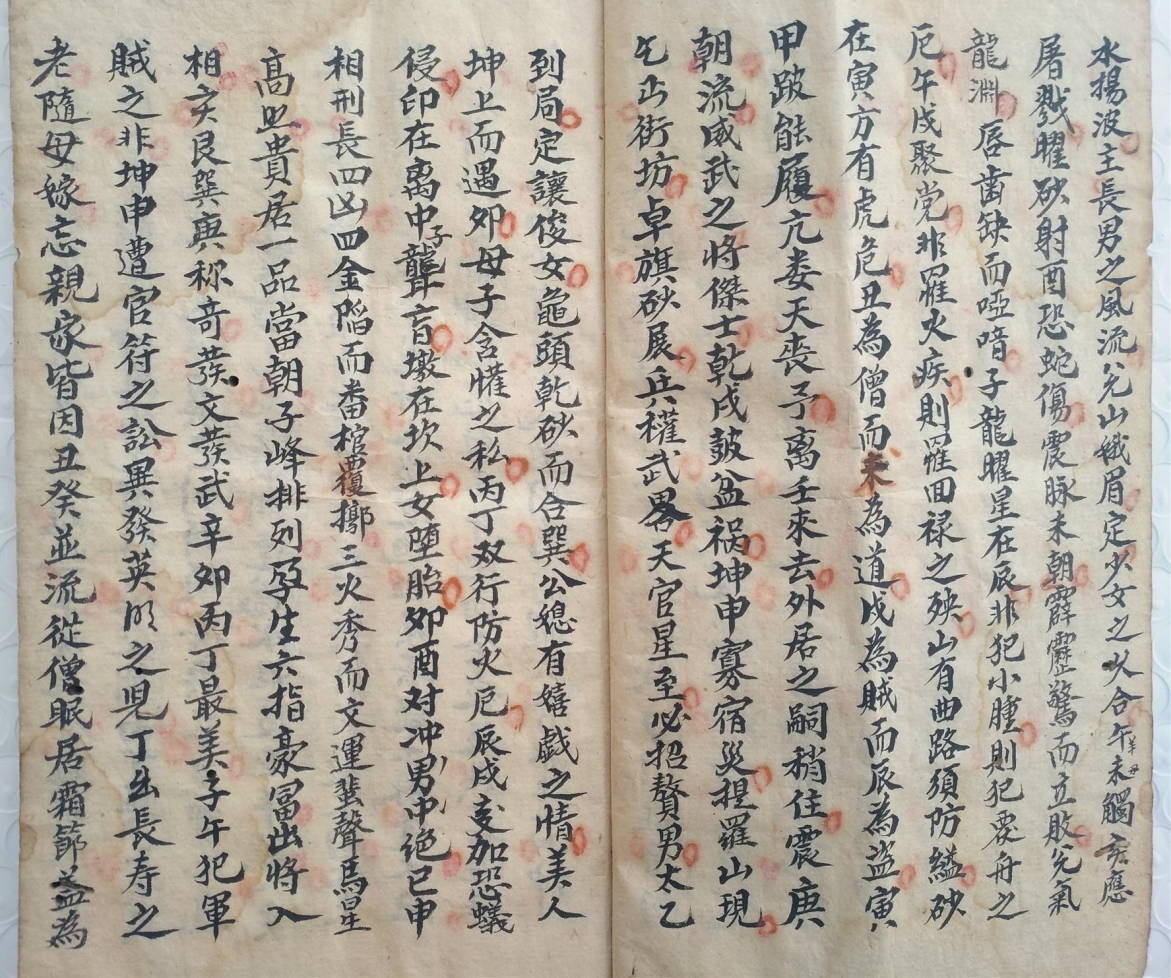 水揚波主長男之風流兌山娥眉定少女之火合午未觸亥應
屠戮曜砂射酉恐蛇傷震脉未朝霹靂驚而立敗兌氣
龍淵唇齒缺而啞喑子龍曜星在辰非犯小腫則犯覆舟之
厄午戌聚党非罹火疾則罹回禄之殃山有曲路須防縊砂
在寅方有虎危丑為僧而未為道戌為賊而辰為盗寅
甲跛能履亢娄天喪予离壬來去外居之嗣稍住震庚
朝流威武之将傑士乾戌鼓盆祸坤申寡宿災揑羅山現
乞丐街坊卓旗砂展兵權武畧天官星至必招贅男太乙
到局定讓俊女龜頭乾砂而合巽公媳有嬉戯之情美人
坤上而遇夘母子含懽之私丙丁双行防火厄辰戌交加恐蟻
侵印在离中子聾盲墩在坎上女堕胎夘酉对冲男女絶巳申
相刑長四凶四金陷而畨棺覆槨三火秀而文運蜚聲馬星
高照貴居一品當朝子峰排列孕生六指豪富出将入
相亥艮巽庚称奇葵文葵武辛夘丙丁最美子午犯軍
賊之非坤申遭官符之訟巽發英明之児丁出長寿之
老隨母嫁忘親家皆因丑癸並流從僧眠居霜節盖為